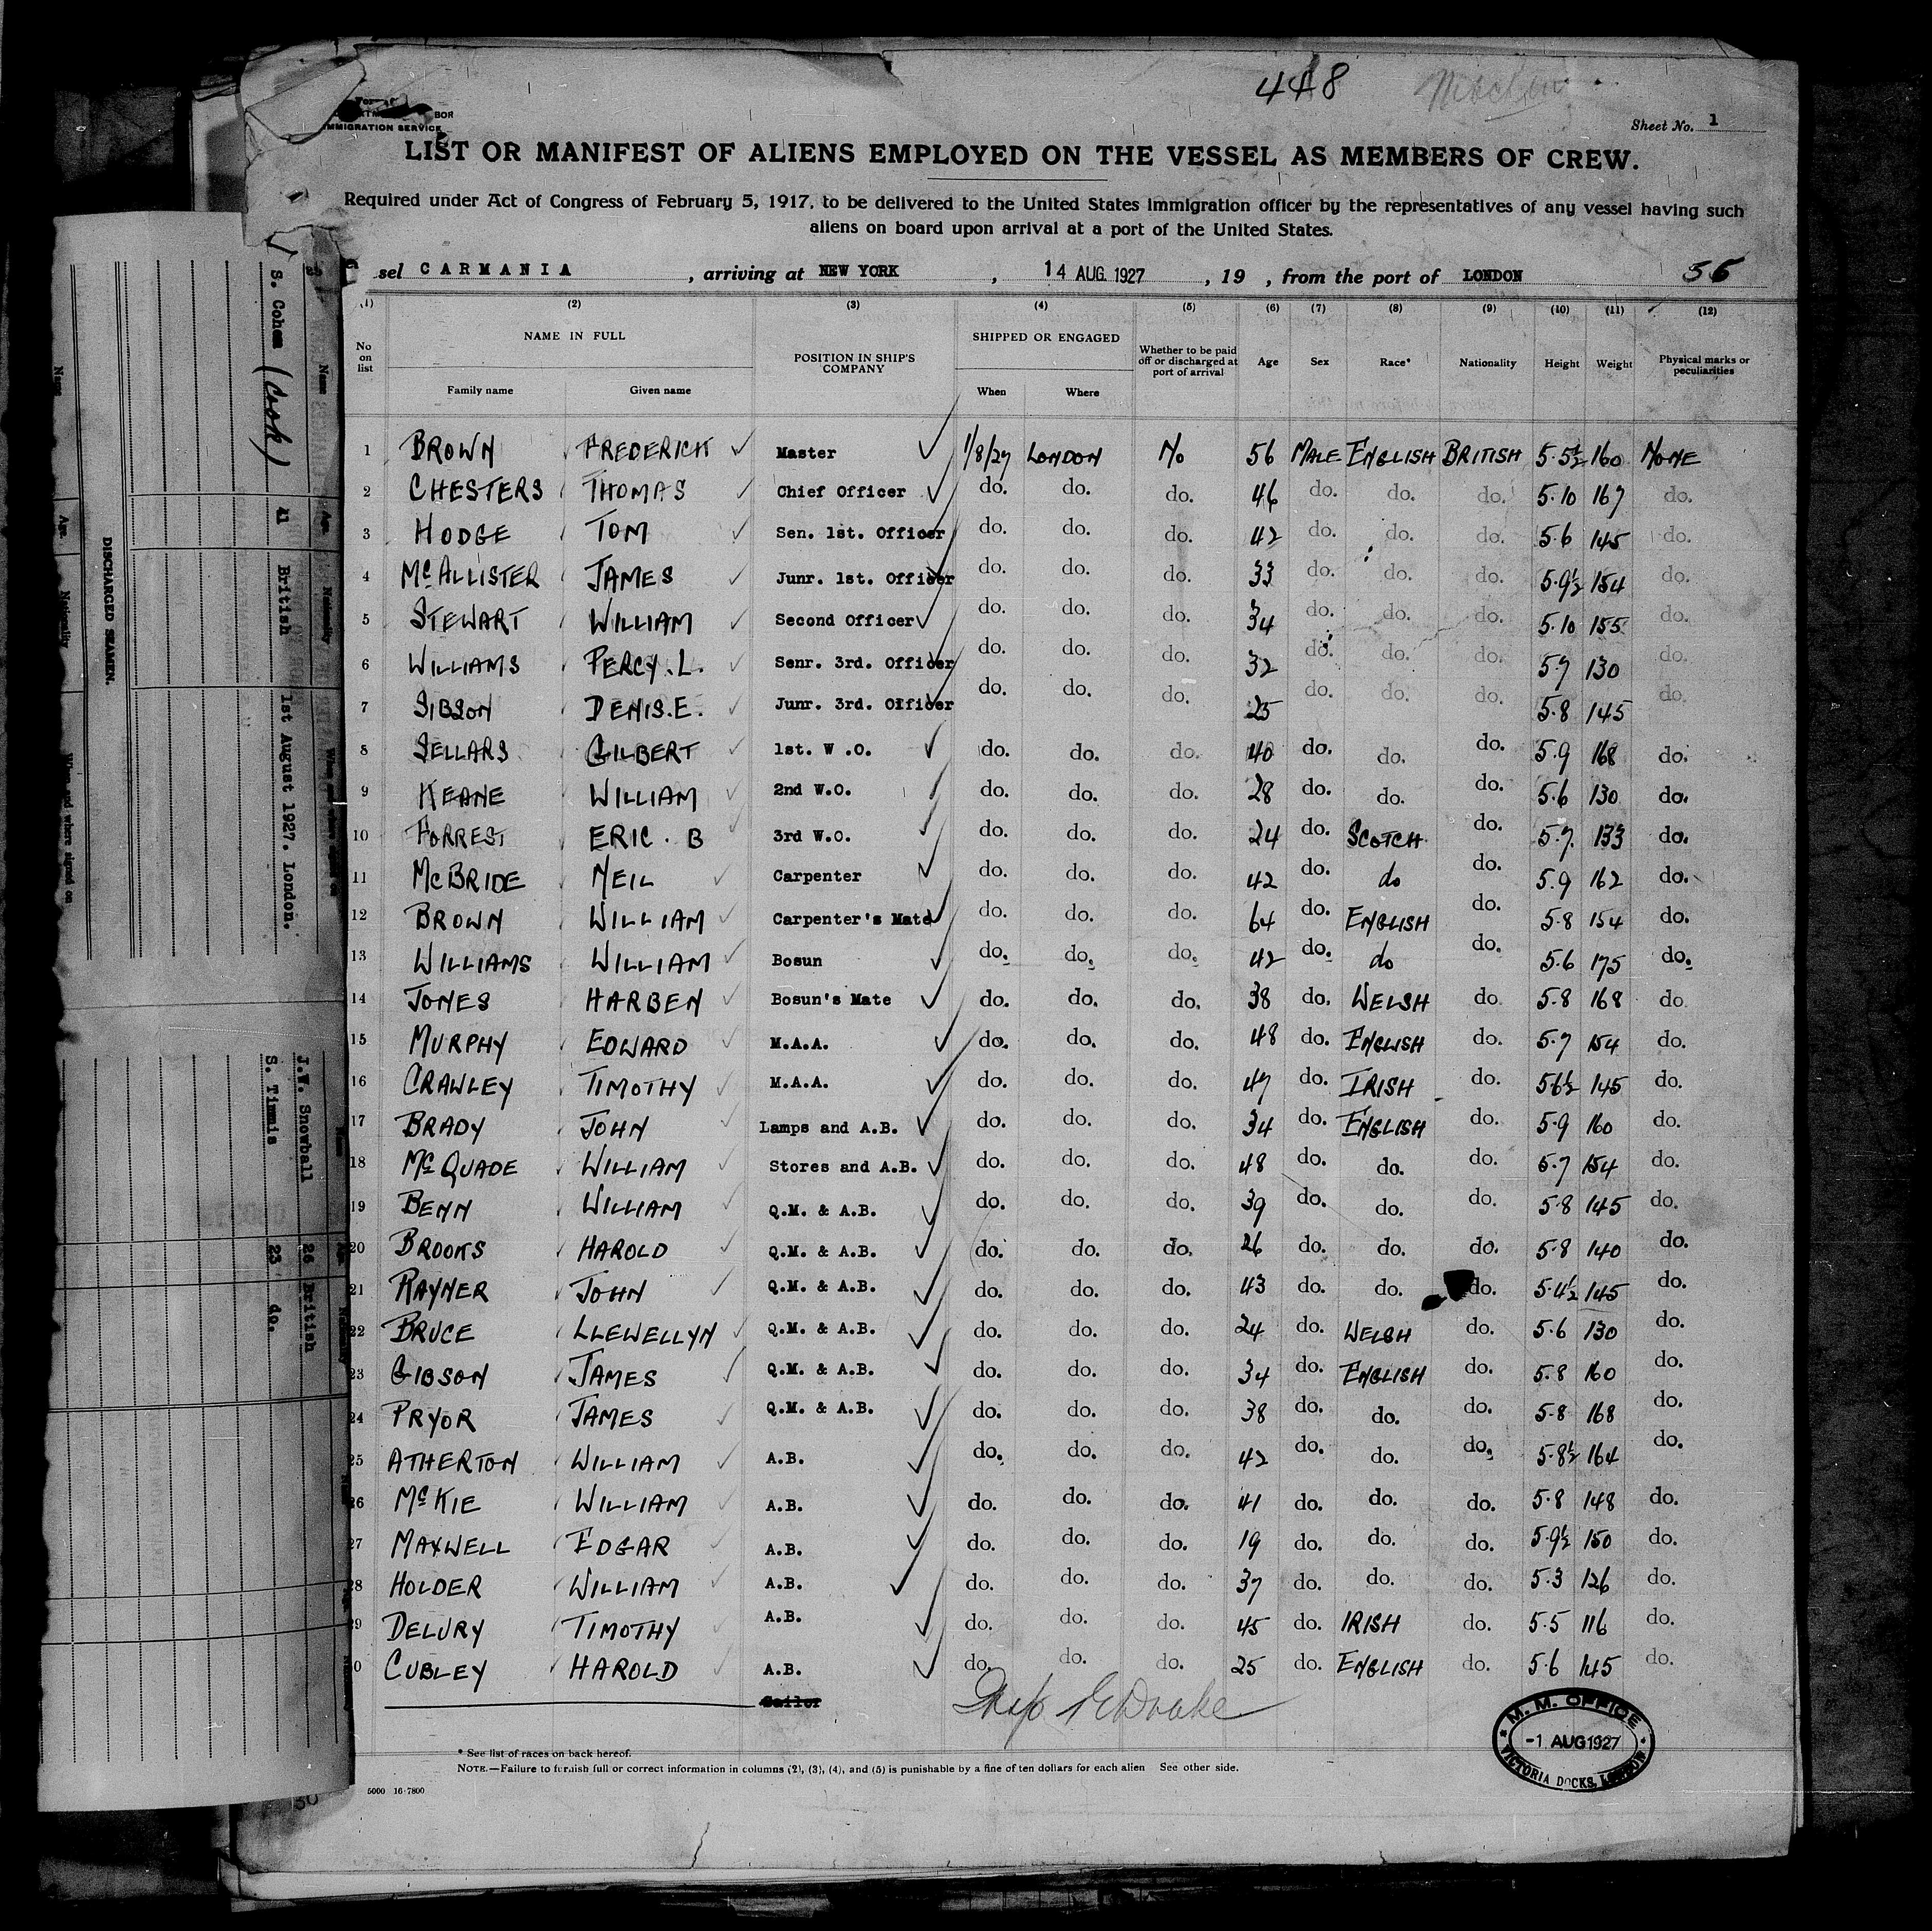 448
Sheet No. 1
IMMIGRATION SERVICE
LIST OR MANIFEST OF ALIENS EMPLOYED ON THE VESSEL AS MEMBERS OF CREW.
Required under Act of Congress of February 5, 1917, to be delivered to the United States immigration officer by the representatives of any vessel having such
aliens on board upon arrival at a port of the United States.
sel CARMANIA, arriving at NEW YORK, 14 AUG. 1927, 19 , from the port of LONDON 56
(1) (2) (3) (4) (5) (6) (7) (8) (9) (10) (11) (12)
No on list NAME IN FULL Family name Given name POSITION IN SHIP'S COMPANY SHIPPED OR ENGAGED When Where Whether to be paid off or discharged at port of arrival Age Sex Race* Nationality Height Weight Physical marks or peculiarities
1 BROWN FREDERICK Master 1/8/27 LONDON No 56 MALE ENGLISH BRITISH 5·5½ 160 NONE
2 CHESTERS THOMAS Chief Officer do. do. do. 46 do. do. do. 5·10 167 do.
3 HODGE TOM Sen. 1st. Officer do. do. do. 42 do. do. do. 5·6 145 do.
4 McALLISTER JAMES Junr. 1st. Officer do. do. do. 33 do. do. do. 5·9½ 154 do.
5 STEWART WILLIAM Second Officer do. do. do. 34 do. do. do. 5·10 155 do.
6 WILLIAMS PERCY.L. Senr. 3rd. Officer do. do. do. 32 do. do. do. 5·7 130 do.
7 SIBSON DENIS.E. Junr. 3rd. Officer do. do. do. 25 do. do. do. 5·8 145 do.
8 SELLARS GILBERT 1st. W .O. do. do. do. 40 do. do. do. 5·9 168 do.
9 KEANE WILLIAM 2nd W.O. do. do. do. 28 do. do. do. 5·6 130 do.
10 FORREST ERIC. B 3rd W.O. do. do. do. 24 do. SCOTCH do. 5·7. 133 do.
11 McBRIDE NEIL Carpenter do. do. do. 42 do. do do. 5·9 162 do.
12 BROWN WILLIAM Carpenter's Mate do. do. do. 64 do. ENGLISH do. 5·8 154 do.
13 WILLIAMS WILLIAM Bosun do. do. do. 42 do. do do. 5·6 175 do.
14 JONES HARBEN Bosun's Mate do. do. do. 38 do. WELSH do 5·8 168 do
15 MURPHY EDWARD M.A.A. do. do. do. 48 do. ENGLISH do. 5·7 154 do.
16 CRAWLEY TIMOTHY M.A.A. do. do. do. 47 do. IRISH do. 5·6½ 145 do.
17 BRADY JOHN Lamps and A.B. do. do. do. 34 do. ENGLISH do. 5·9 160 do.
18 McQUADE WILLIAM Stores and A.B. do. do. do. 48 do. do. do. 5·7 154 do.
19 BENN WILLIAM Q.M. & A.B. do. do. do. 39 do. do. do. 5·8 145 do.
20 BROOKS HAROLD Q.M. & A.B. do. do. do. 26 do. do. do. 5·8 140 do.
21 RAYNER JOHN Q.M. & A.B. do. do. do. 43 do. do. do. 5·4½ 145 do.
22 BRUCE LLEWELLYN Q.M. & A.B. do. do. do. 24 do. WELSH do. 5·6 130 do.
23 GIBSON JAMES Q.M. & A.B. do. do. do. 34 do. ENGLISH do. 5·8 160 do.
24 PRYOR JAMES Q.M. & A.B. do. do. do. 38 do. do. do. 5·8 168 do.
25 ATHERTON WILLIAM A.B. do. do. do. 42 do. do. do. 5·8½ 164 do.
26 McKIE WILLIAM A.B. do. do. do. 41 do. do. do. 5·8 148 do.
27 MAXWELL EDGAR A.B. do. do. do. 19 do. do. do. 5·9½ 150 do.
28 HOLDER WILLIAM A.B. do. do. do. 37 do. do. do. 5·3 126 do.
29 DELURY TIMOTHY A.B. do. do. do. 45 do. IRISH do. 5·5 116 do.
30 CUBLEY HAROLD A.B. do. do. do. 25 do. ENGLISH do. 5·6 145 do.
Sailor
M. M. OFFICE
-1 AUG 1927
VICTORIA DOCKS, LONDON
* See list of races on back hereof.
NOTE.—Failure to furnish full or correct information in columns (2), (3), (4), and (5) is punishable by a fine of ten dollars for each alien See other side.
5000 16-7800
30
S. Cohen (Cook) 41 British 1st August 1927. London.
DISCHARGED SEAMEN.
Name Age Nationality When and where signed on
J.W. Snowball 26 British
S. Timmis 23 do.